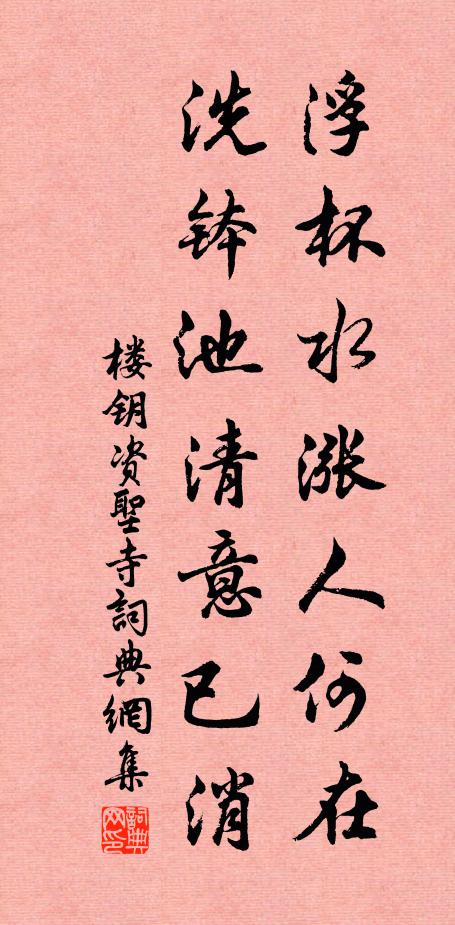 浮杯水漲人何在
洗鉢池清意已消
楼钥资聖寺詞典網集
詞典網印